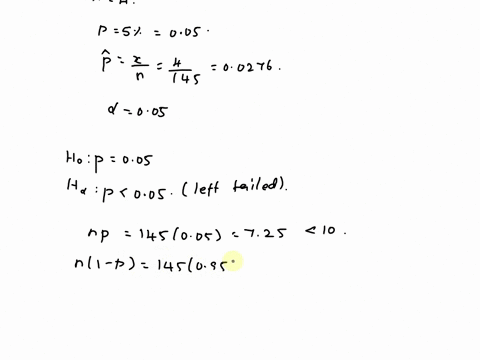 p = 5% = 0.05.
p̂ = x/n = 4/145 = 0.0276.
α = 0.05
H₀ : p = 0.05
Hₐ : p < 0.05. (left tailed).
np = 145(0.05) = 7.25 < 10.
n(1-p) = 145(0.95